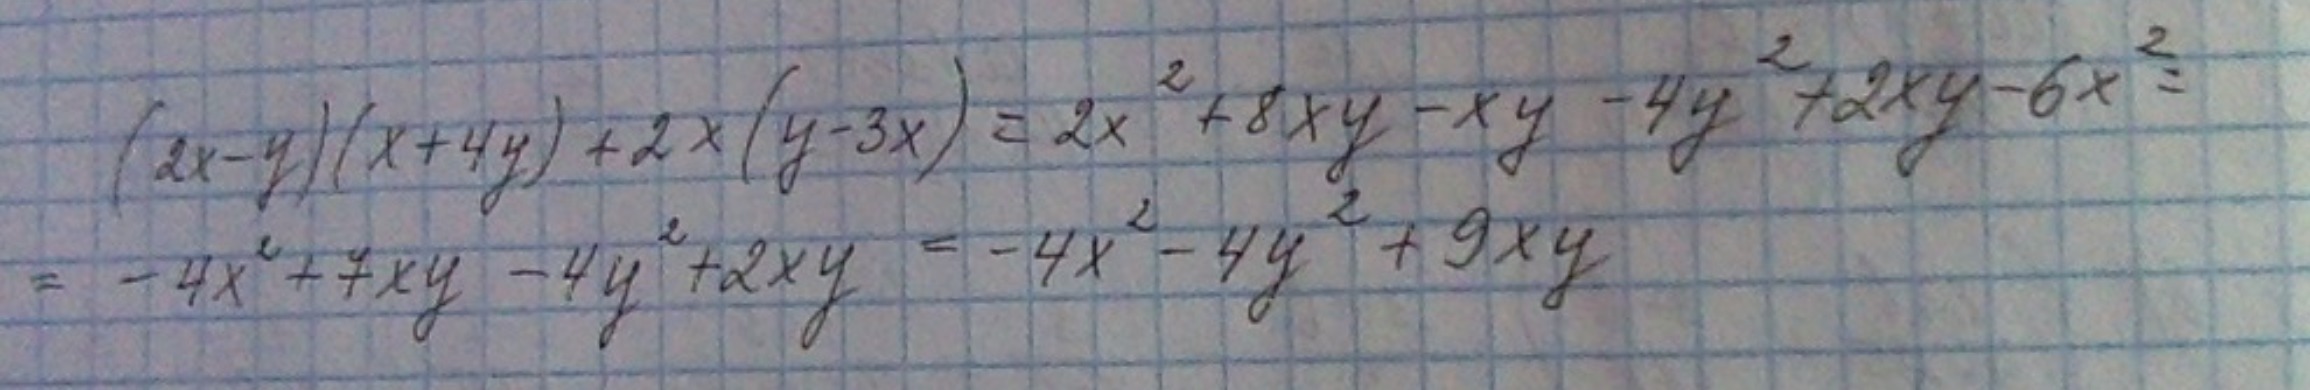 (2x-y)(x+4y)+2x(y-3x)=2x²+8xy-xy-4y²+2xy-6x²=
= -4x²+7xy-4y²+2xy = -4x²-4y²+9xy